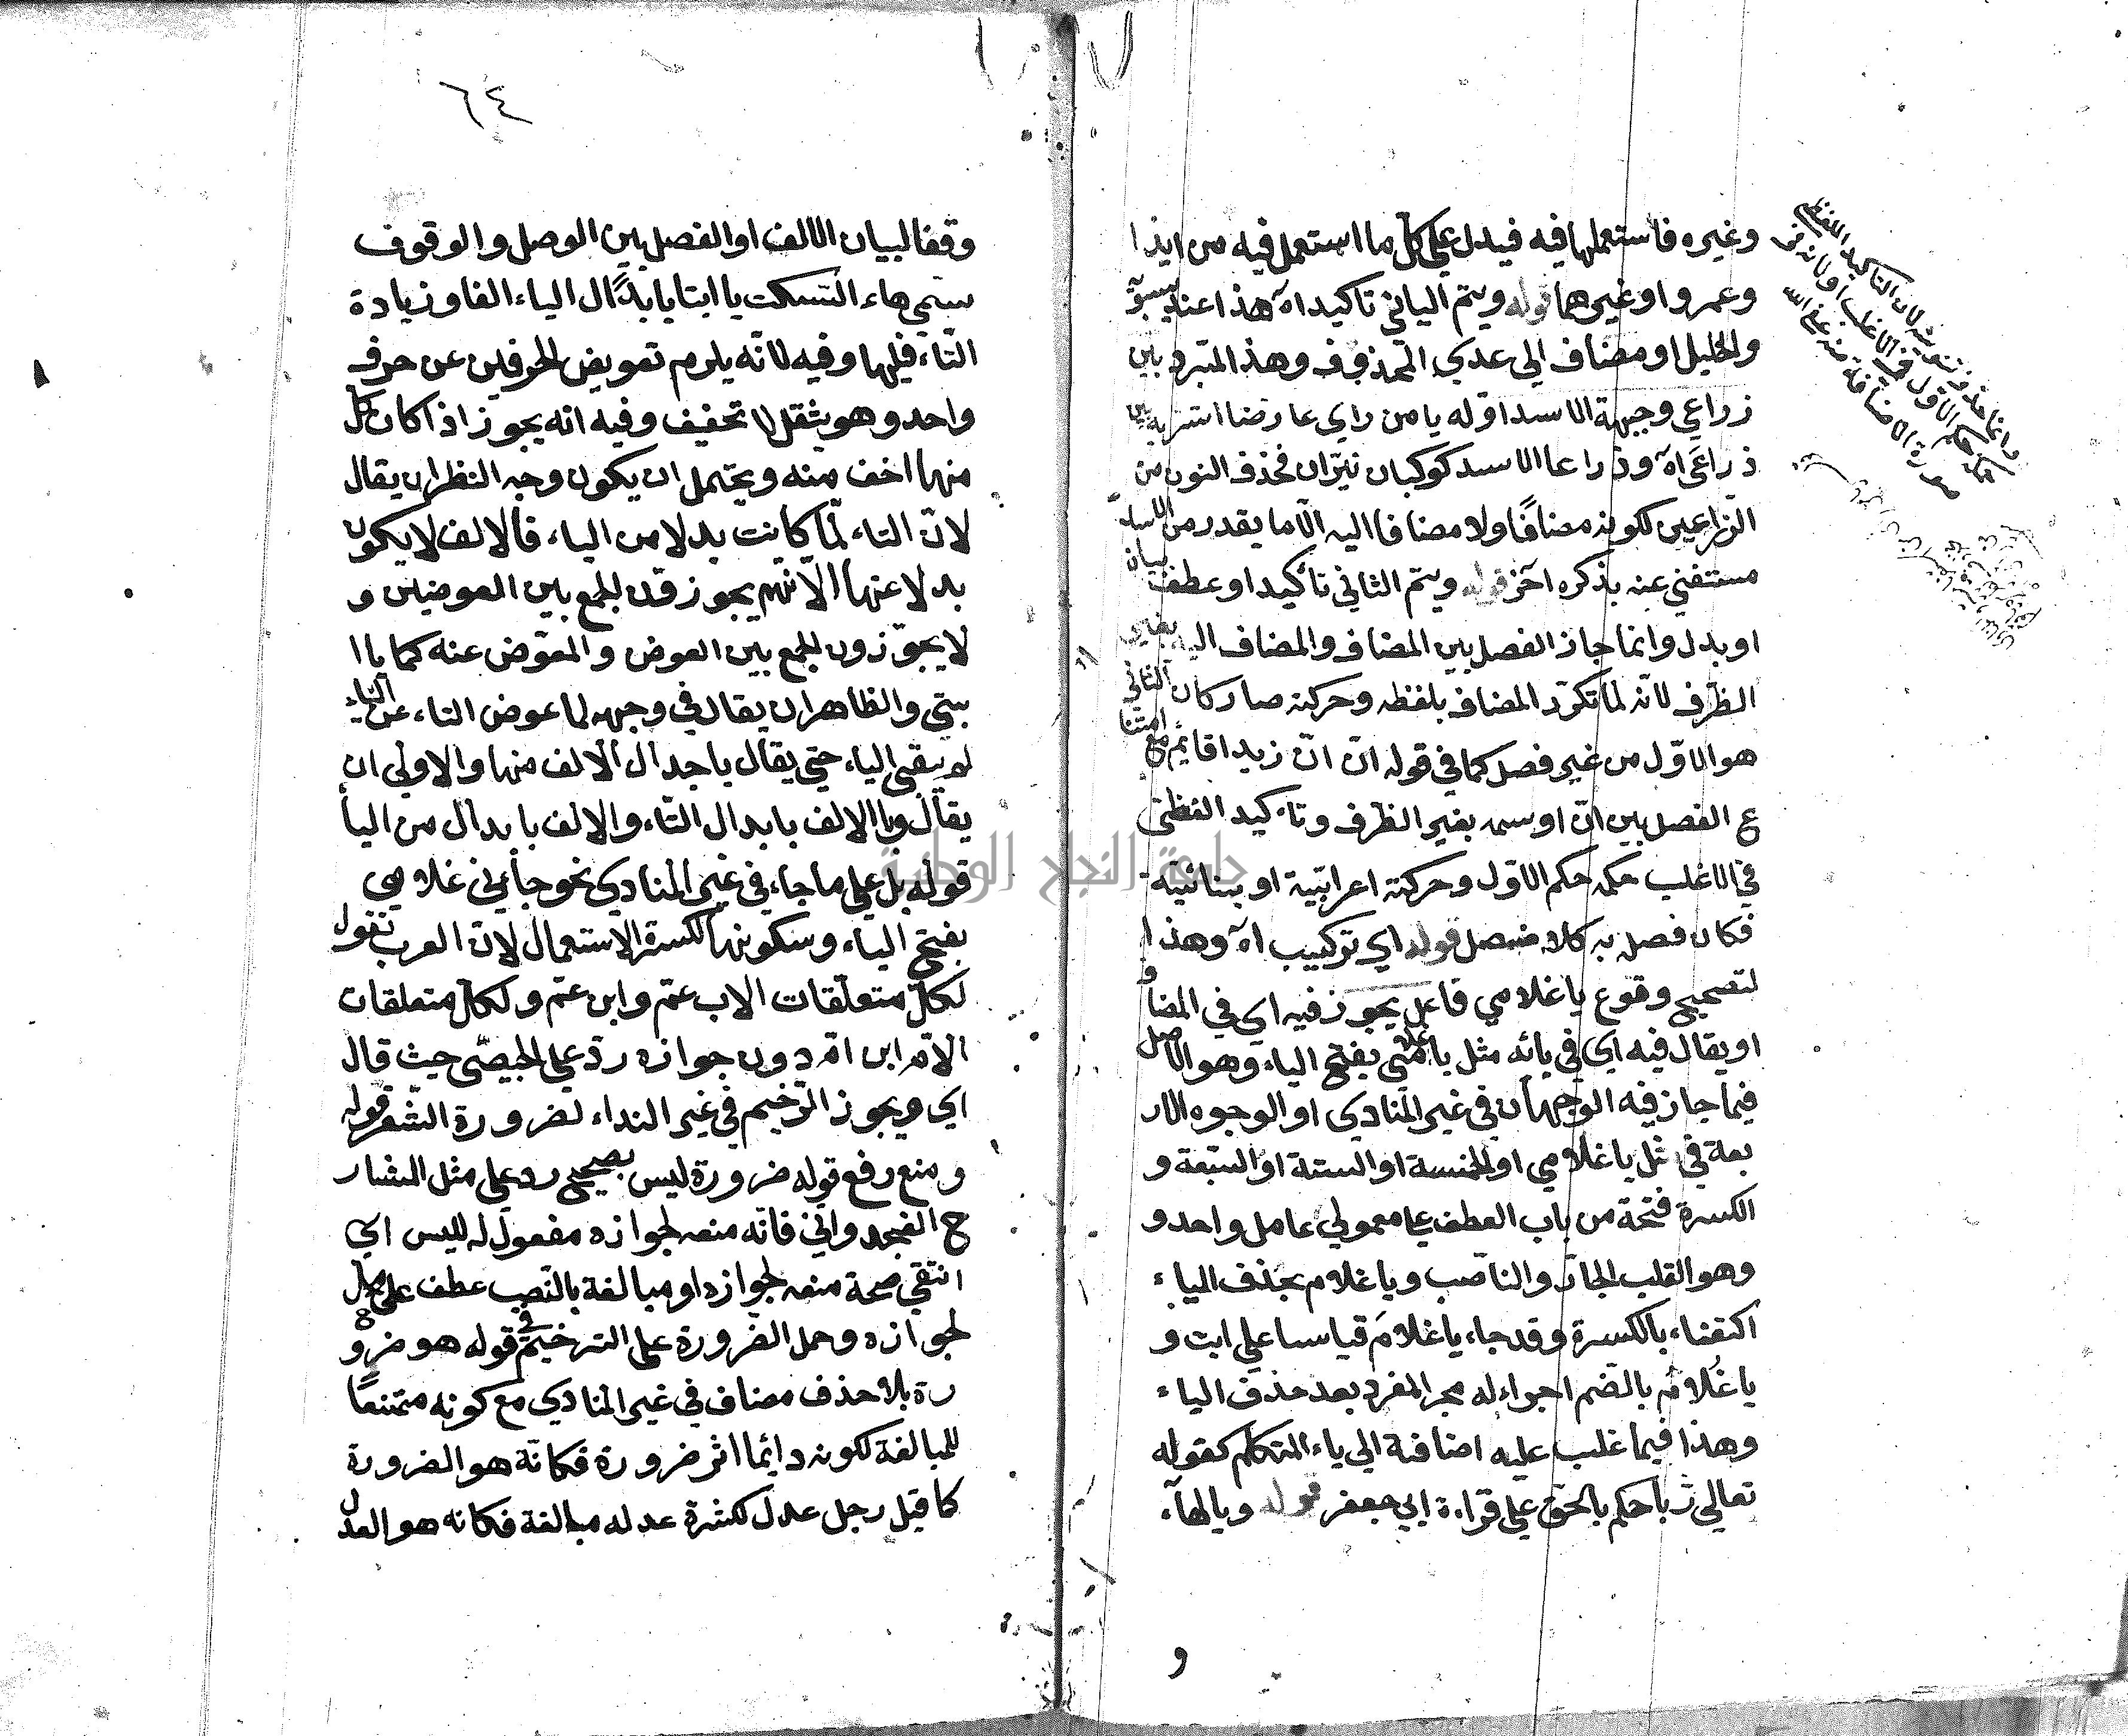 وغيره فاستعملها فيه فيدل علي كل ما استعمل فيه من ايذا
وعمروا وغيرهما قوله ويتم الياني تاكيدا اه هذا عند سيبو
والخليل او مضاف الي عدي المحذوف وهذا المبرد بين
زراعي وجبهة الاسد اوله يا من راي عارضا اسر به بين
ذراعي اه وذراعا الاسد كوكبان نيران فحذف النون من
الزراعين لكونه مضافا ولا مضافا اليه الا ما يقدر من الاسد
مستغني عنه بذكره اخر قوله ويتم الثاني تأكيدا وعطف بيان
او بدل وانما جاز الفصل بين المضاف والمضاف اليه بغير
الظرف لانه لما تكرر المضاف بلفظه وحركته صار كان الثاني
هو الاول من غير فصل كما في قوله ان ان زيدا قائم مع امتنا
ع الفصل بين ان واسمه بغير الظرف وتاءكيد اللفظي
في الاغلب حكمه حكم الاول وحركته اعرابية او بنائية
فكان فصل به كلا فصل قوله اي تركيب اه وهذا
لتصحيح وقوع يا غلامي فاعل يجوز فيه اي في المضا
او يقال فيه اي في يائه مثل يا غلامي بفتح الياء وهو الاصل
فيما جاز فيه الوجهان في غير المنادي او الوجوه الار
بعة في مثل يا غلامي او الخمسة او الستة او السبعة و
الكسرة فتحة من باب العطف علي معمولي عامل واحد و
وهو القلب الجار والناصب ويا غلام بحذف الياء
اكتفاء بالكسرة وقد جاء يا غلام قياسا علي ابت و
يا غلام بالضم اجراء له مجر المفرد بعد حذف الياء
وهذا فيما غلب عليه اضافة الي ياء المتكلم كقوله
تعالي رب احكم بالحق علي قراءة ابي جعفر قوله وبالهاء
و
وانما حذف تنوينه لان التاكيد اللفظي
حكمه حكم الاول في الاغلب
٦٤
وقفا لبيان الالف او الفصل بين الوصل والوقوف
سمي هاء السكت يا ابتا بابدال الياء الفا وزيادة
التاء قبلها وفيه لانه يلرم تعويض الحرفين عن حرف
واحد وهو يثقل لا تخفيف وفيه انه يجوز اذا كان كل
منها اخف منه ويحتمل ان يكون وجه النظر ان يقال
لان التاء لما كانت بدلا من الياء فالالف لا يكون
بدلا عنها الا انهم يجوزون الجمع بين العوضين و
لا يجوزون الجمع بين العوض والمعوض عنه كما يا ا
بتي والظاهر ان يقال في وجهه لما عوض التاء عن الياء
لم يبقي الياء حتي يقال يا جدال الالف منها والاولي ان
يقال ويا الالف بابدال التاء والالف بابدال من اليأ
قوله بل علي ما جاء في غير المنادي نحو جأني غلامي
بفتح الياء وسكونها لكسرة الاستعمال لان العرب تقول
لكل متعلقات الاب عم وابن عم ولكل متعلقات
الام ابن ام دون جوازه رد علي الخبيصي حيث قال
اي ويجوز الترخيم في غير النداء لضرورة الشعر قوله
ومنع رفع قوله ضرورة ليس بصحيح رد علي مثل الشار
ح الغجدواني فانه منعه لجوازه مفعول له لليس اي
انتفي صحة منعه لجوازه او مبالغة بالنصب عطف علي محل
لجوازه وحمل الضرورة علي الترخيم في قوله هو ضرو
رة بلا حذف مضاف في غير المنادي مع كونه ممتنعا
للمبالغة لكونه دائما اثر ضرورة فكانة هو الضرورة
كما قيل رجل عدل لكثرة عدله مبالغة فكانه هو العدل
جامعة النجاح الوطنية